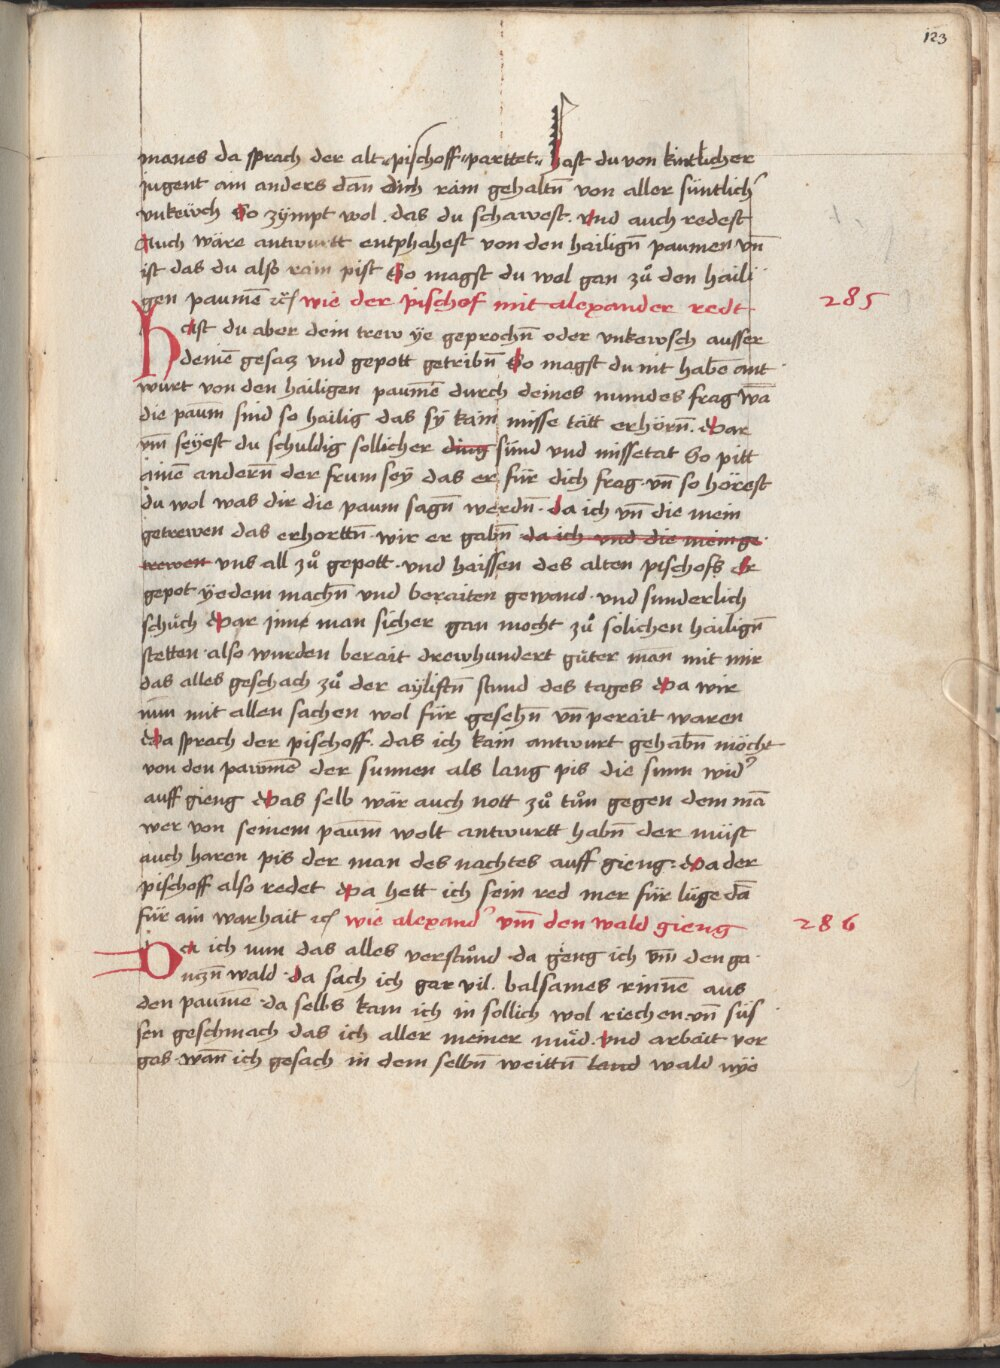 123
manes da sprach der alt pischoff parttet hast du von kintlicher
jugent ain anders dan dich rain gehaltn̄ von aller süntlich
vnkeẅch So zÿmpt wol . das du schawest . vnd auch redest
Auch wäre antwurtt entphahest von den hailign̄ paumen vn̄
ist das du also rain pist So magst du wol gan zů den haili
gen paumē wie der pischof mit alexander redt
285
Hast du aber dein trew ÿe geprochn̄ oder vnkewsch ausser
deniē gesacz vnd gepott getribn̄ So magst du nit habē ant
wurt von den hailigen paumē durch deines mundes frag wā
die paum sind so hailig das sÿ kain misse tätt erhörn̄ . Dar
vm̄ seÿest du schuldig sollicher ding sünd vnd missetat So pitt
ainē andern̄ der frum seÿ das er für dich frag . vn̄ so hörest
du wol was dir die paum sagn̄ werdn̄ . da ich vn̄ die mein
getrewen das erhorttn̄ . wir er gabn̄ da ich vnd die mein ge
trewen vns all zů gepott . vnd haissen des alten pischofs Er
gepot ÿedem machn̄ vnd beraiten gewand . vnd sunderlich
schůch Dar jnne man sicher gan mocht zů solichen hailign̄
stetten . also wurden berait drewhundert gůter man mit mir
das alles geschach zů der aÿlistn̄ stund des tages Da wir
nun mit allen sachen wol für gesehn̄ vn̄ perait waren
Da sprach der pischoff . das ich kain antwurt gehabn̄ möcht
von den pawmē der sunnen als lang pis die sunn wid
auff gieng Das selb wär auch nott zů tůn gegen dem mā
wer von seinem paum wolt antwurtt habn̄ der müst
auch haren pis der man des nachtes auff gieng . Da der
pischoff also redet Da hett ich sein red mer für lüge dā
für ain warhait wie alexand vm̄ den wald gieng
286
Da ich nun das alles verstůnd . da gieng ich vm̄ den ga
nczn̄ wald . da sach ich gar vil . balsames rinnē aus
den paumē . da selbs kam ich in sollich wol riechen . vn̄ süs
sen geschmach das ich aller meiner müd . vnd arbait ver
gas . wan̄ ich gesach in dem selbn̄ weittn̄ land wald wÿe